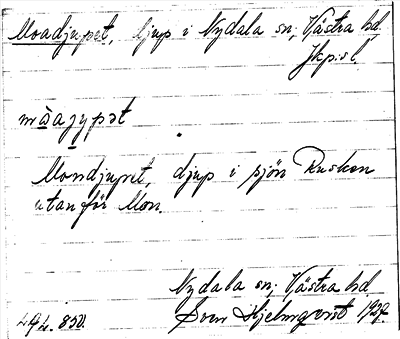 Moadjupet, djup i Nydala sn, Västra hd.
Jkp:s l.
mɷajypət
Mondjupet, djup i sjön Rusken
utanför Mon.
Nydala sn, Västra hd
Sven Hjelmqvist 1927.